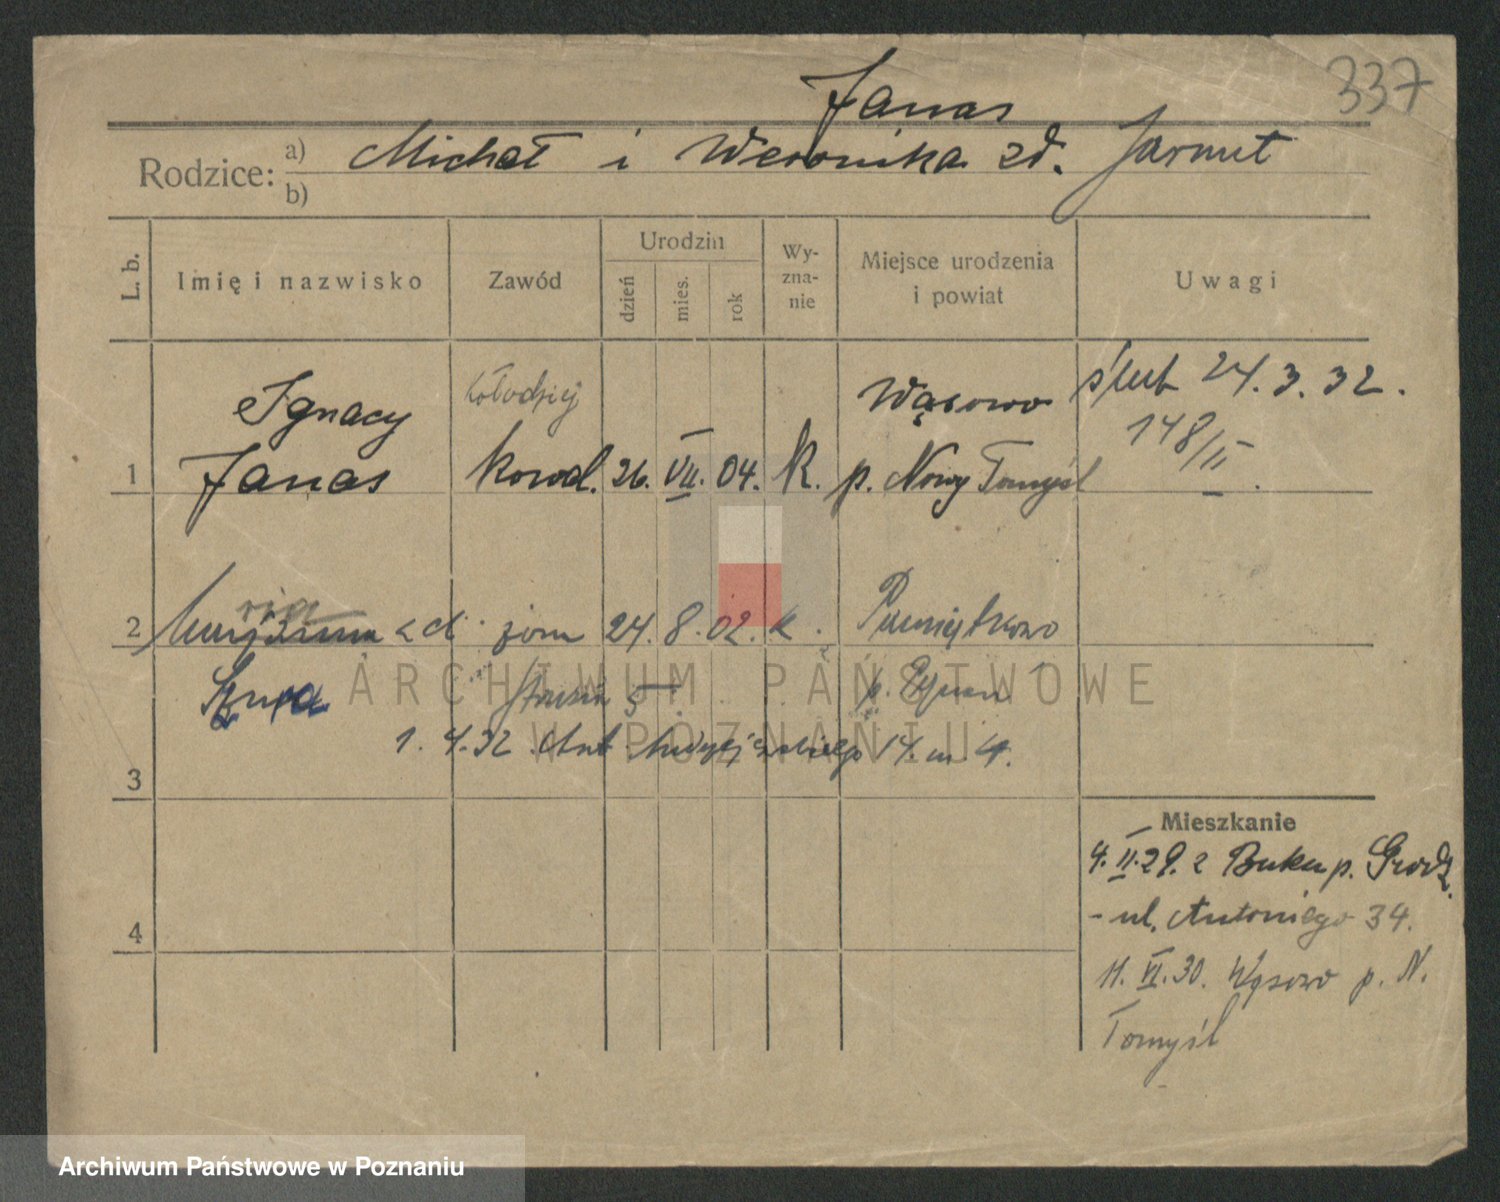 337
Janas
Rodzice: a) Michał i Weronika zd. Jarmut
b)
L. b. Imię i nazwisko Zawód Urodzin dzień mies. rok Wy-zna-nie Miejsce urodzenia i powiat Uwagi
Ignacy kołodziej Wąsowo ślub 24.3.32.
148/II.
1 Janas kowal. 26. VII. 04. K. p. Nowy Tomyśl
ria
2 zd. żona 24. 8. 02. k. Pamiątkowo
ARCHIWUM PAŃSTWOWE
W POZNANIU
1.4.32 14. m. 4.
3
Mieszkanie
4.II.29. z Buku p. Grodz.
- ul. Antoniego 34.
4
11.VI.30. Wąsowo p. N.
Tomyśl
Archiwum Państwowe w Poznaniu